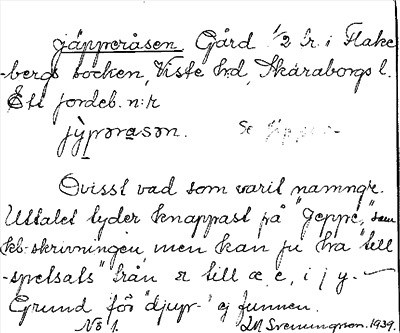 Jäpperåsen Gård 1/2 kr. i Flake
-bergs socken, Viste hd, Skaraborgs l.
Ett jordeb. n:r
jỳpərasən. Se Jäpper-
Ovisst vad som varit namngr.
Uttalet tyder knappast på "Jeppe", som
kb.-skrivningen, men kan ju ha "till
-spetsats" från ä till æ, e, i, j y.
Grund för "djup-" ej funnen.
No 1. Svenungsson. 1939.